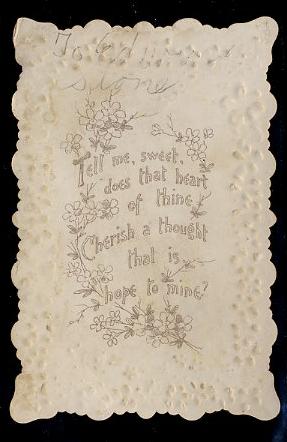 To
stone
Tell me, sweet,
does that heart
of thine
Cherish a thought
that is
hope to mine?